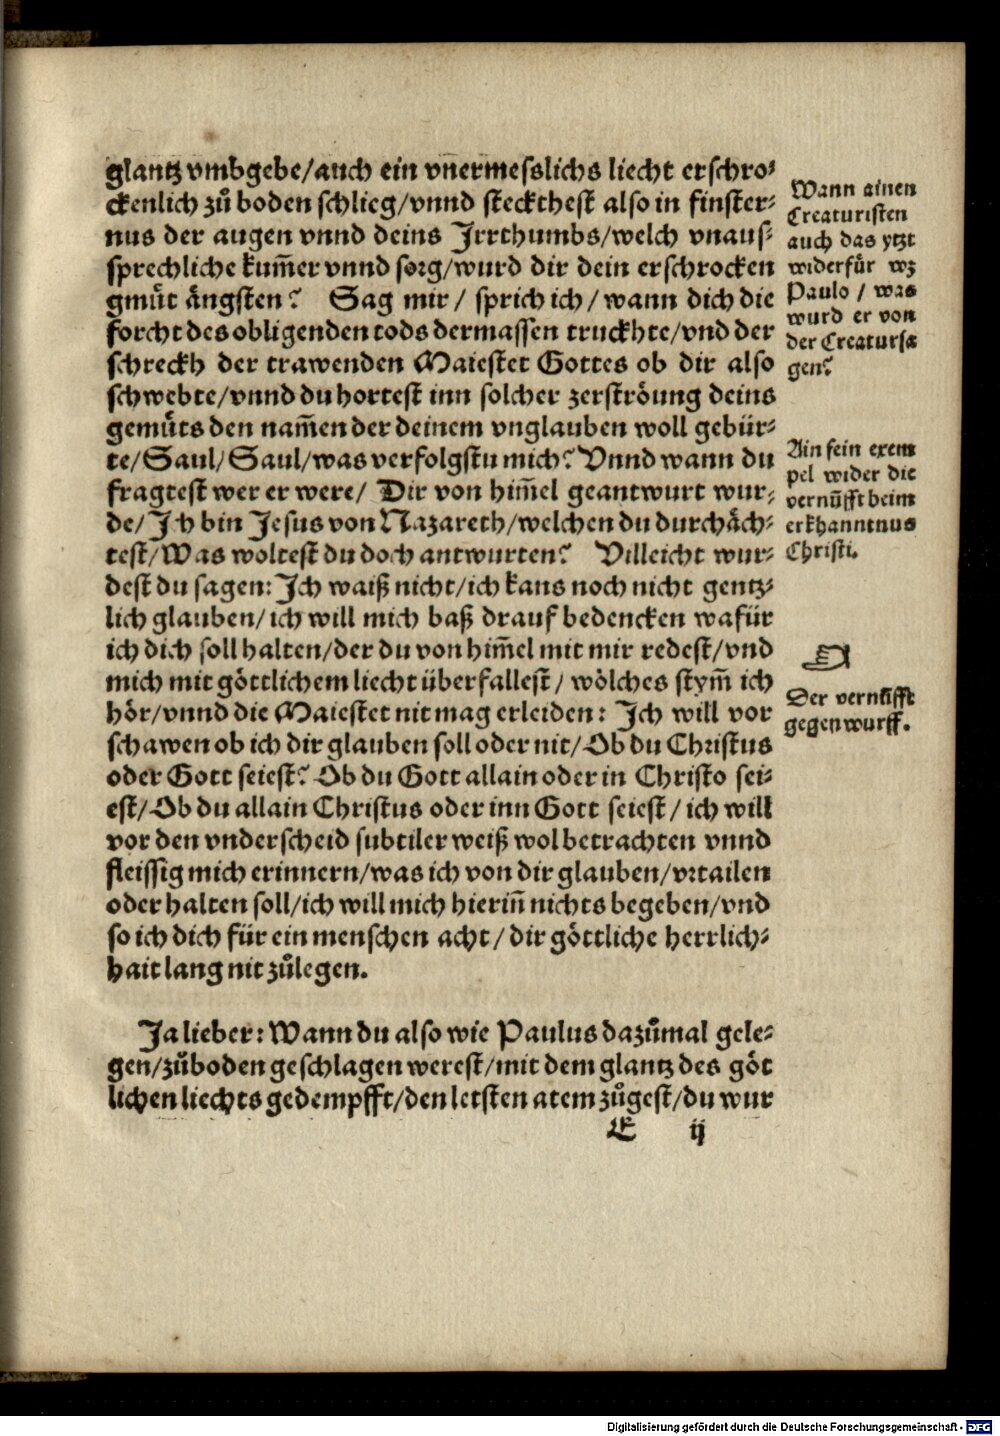 glantz vmbgebe/auch ein vnermesslichs liecht erschro⸗
ckenlich zů boden schlieg/vnnd steckthest also in finster⸗
nus der augen vnnd deins Jrrthumbs/welch vnaus⸗
sprechliche kum̄er vnnd sorg/wurd dir dein erschrocken
gmuͤt aͤngsten? Sag mir/ sprich ich/wann dich die
forcht des obligenden tods dermassen truckhte/vnd der
schreckh der trawenden Maiestet Gottes ob dir also
schwebte/vnnd du hortest inn solcher zerstroͤung deins
gemuͤts den nam̄en der deinem vnglauben woll gebuͤr⸗
te/Saul/Saul/was verfolgstu mich? Vnnd wann du
fragtest wer er were/ Dir von him̄el geantwurt wur⸗
de/Jch bin Jesus von Nazareth/welchen du durchaͤch⸗
test/Was woltest du doch antwurten? Villeicht wur⸗
dest du sagen: Jch waiß nicht/ich kans noch nicht gentz⸗
lich glauben/ich will mich baß drauf bedencken wafuͤr
ich dich soll halten/der du von him̄el mit mir redest/vnd
mich mit goͤttlichem liecht uͤberfallest/ woͤlches stym̄ ich
hoͤr/vnnd die Maiestet nit mag erleiden: Jch will vor
schawen ob ich dir glauben soll oder nit/Ob du Christus
oder Gott seiest? Ob du Gott allain oder in Christo sei⸗
est/Ob du allain Christus oder inn Gott seiest/ich will
vor den vnderscheid subtiler weiß wol betrachten vnnd
fleissig mich erinnern/was ich von dir glauben/vrtailen
oder halten soll/ich will mich hierin̄ nichts begeben/vnd
so ich dich fuͤr ein menschen acht/dir goͤttliche herrlich⸗
hait lang nit zůlegen.
Ja lieber: Wann du also wie Paulus dazůmal gele⸗
gen/zůboden geschlagen werest/mit dem glantz des goͤt
lichen liechts gedempfft/den letsten atem zůgest/du wur
E ij
Wann ainen
Creaturisten
auch das ytzt
widerfuͤr wz
Paulo / was
wurd er von
der Creatur sa
gen?
Ain fein exem
pel wider die
vernūfft beim
erkhanntnus
Christi.
Der vernūfft
gegenwurff.
Digitalisierung gefördert durch die Deutsche Forschungsgemeinschaft - DFG